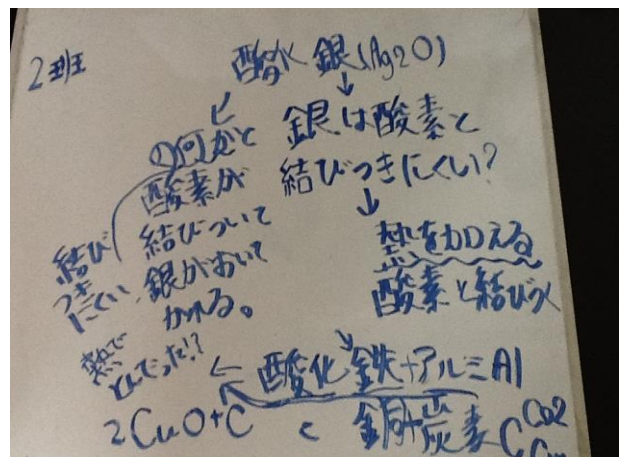 2班
酸化銀(Ag2O)
↓
銀は酸素と
結びつきにくい?
↓
熱を加える
酸素と結びつく
↙
の何かと
酸素が
結びついて
銀がおいて
かれる。
結び
つき
にくい
熱で
とんでった!?
← 酸化鉄+アルミAl
2CuO+C < 銅+炭素 C CO2
Cu